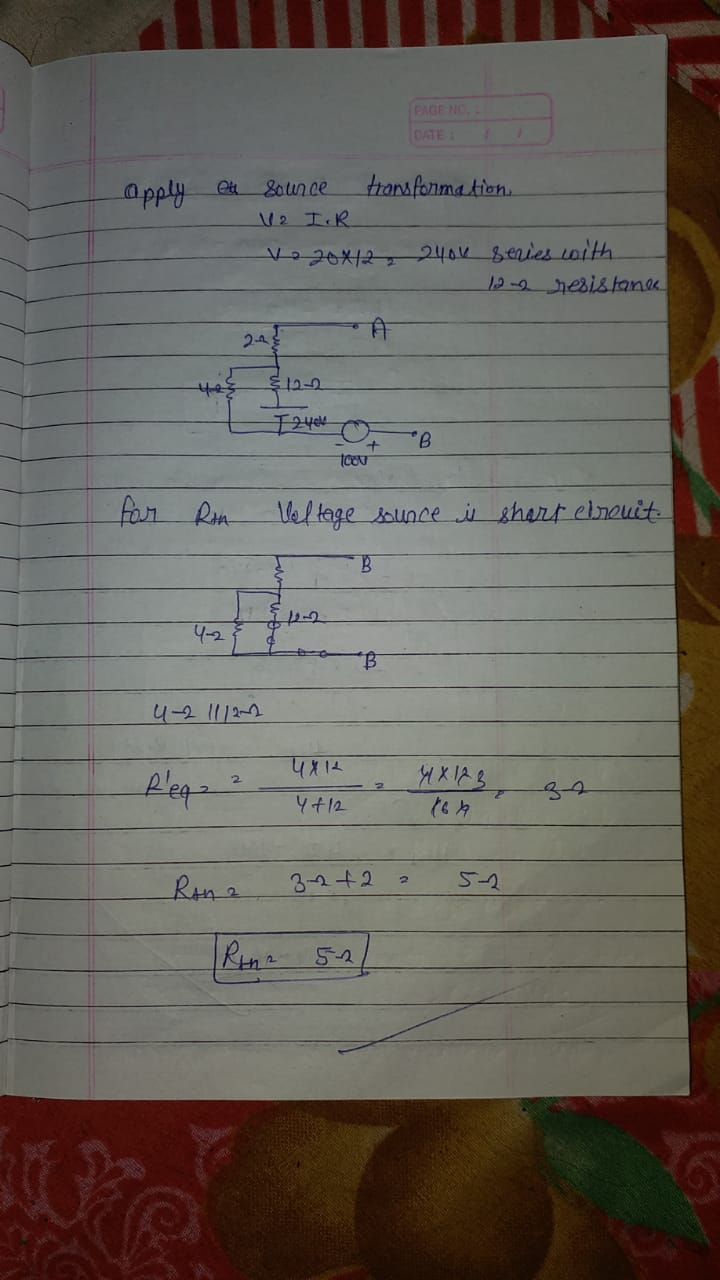 PAGE NO. :
DATE : / /
apply source transformation.
V = I.R
V = 20×12 = 240V series with
12Ω resistance
2Ω
A
4Ω
12Ω
240V
- +
B
100V
for Rth Voltage source is short circuit.
B
12Ω
4Ω
B
4Ω || 12Ω
R'eq = = 4×12 / 4+12 = 4×12 3 / 16 4 = 3Ω
Rth = 3Ω + 2 = 5Ω
Rth = 5Ω